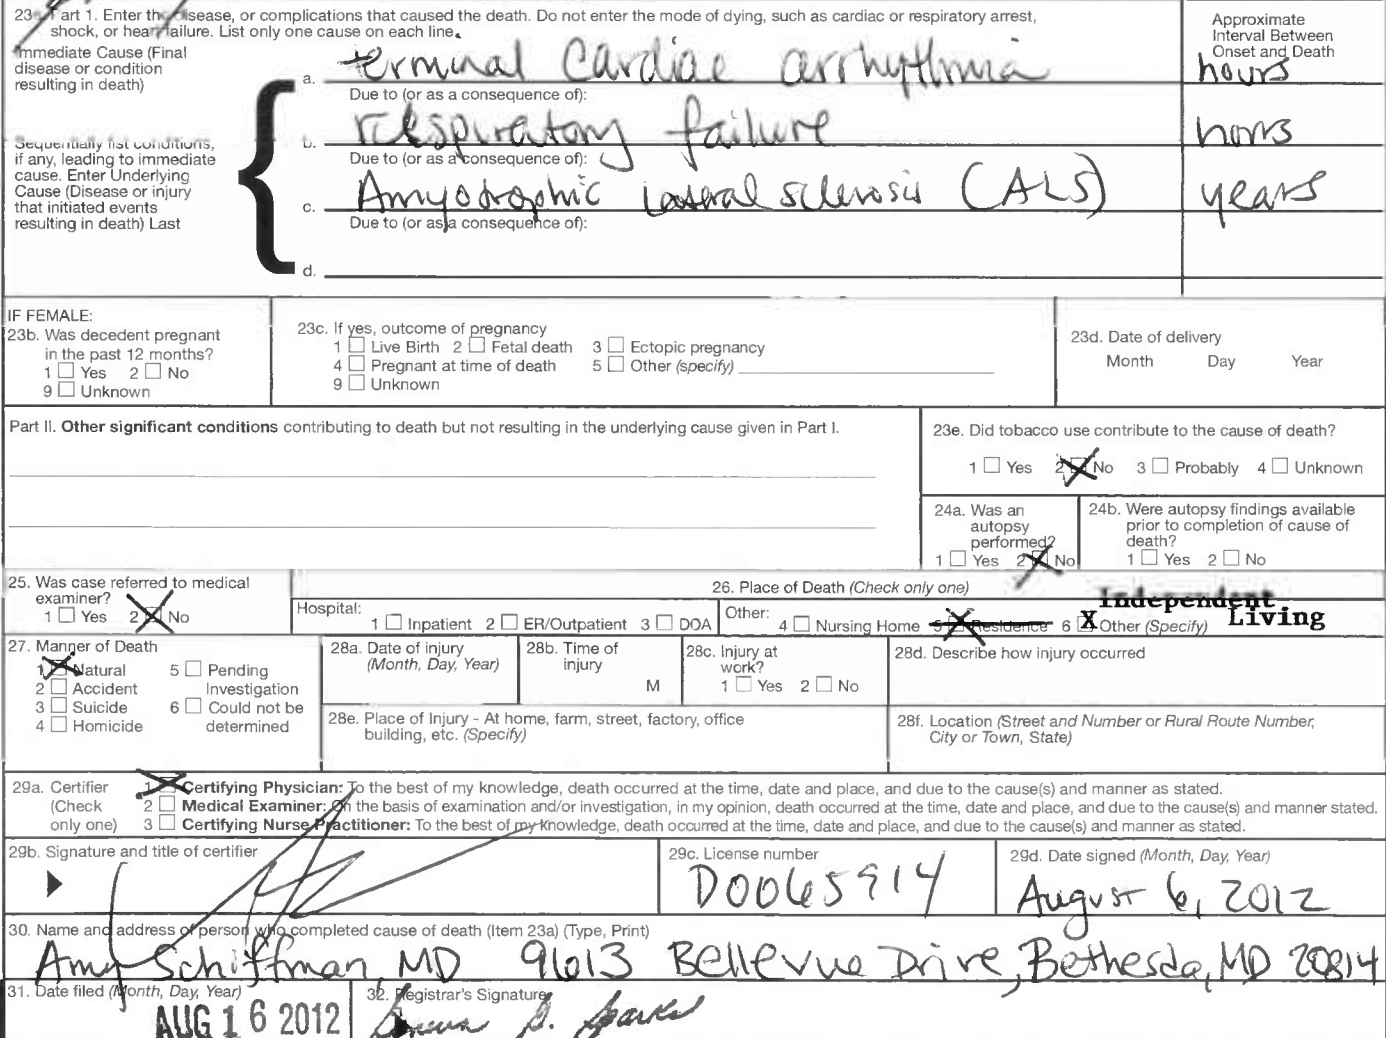 23 Part 1. Enter the disease, or complications that caused the death. Do not enter the mode of dying, such as cardiac or respiratory arrest,
shock, or heart failure. List only one cause on each line.
Approximate
Interval Between
Onset and Death
Immediate Cause (Final
disease or condition
resulting in death)
a. terminal cardiac arrhythmia hours
Due to (or as a consequence of):
b. respiratory failure hours
Sequentially list conditions,
if any, leading to immediate
cause. Enter Underlying
Cause (Disease or injury
that initiated events
resulting in death) Last
Due to (or as a consequence of):
c. Amyotrophic lateral sclerosis (ALS) years
Due to (or as a consequence of):
d.
IF FEMALE:
23b. Was decedent pregnant
in the past 12 months?
1 Yes 2 No
9 Unknown
23c. If yes, outcome of pregnancy
1 Live Birth 2 Fetal death 3 Ectopic pregnancy
4 Pregnant at time of death 5 Other (specify)
9 Unknown
23d. Date of delivery
Month Day Year
Part II. Other significant conditions contributing to death but not resulting in the underlying cause given in Part I.
23e. Did tobacco use contribute to the cause of death?
1 Yes 2 X No 3 Probably 4 Unknown
24a. Was an
autopsy
performed?
1 Yes 2 X No
24b. Were autopsy findings available
prior to completion of cause of
death?
1 Yes 2 No
25. Was case referred to medical
examiner?
1 Yes 2 X No
26. Place of Death (Check only one)
Hospital: 1 Inpatient 2 ER/Outpatient 3 DOA
Other: 4 Nursing Home 5 X Residence 6 X Other (Specify) Independent
Living
27. Manner of Death
1 X Natural 5 Pending
2 Accident Investigation
3 Suicide 6 Could not be
4 Homicide determined
28a. Date of injury
(Month, Day, Year)
28b. Time of
injury
M
28c. Injury at
work?
1 Yes 2 No
28d. Describe how injury occurred
28e. Place of Injury - At home, farm, street, factory, office
building, etc. (Specify)
28f. Location (Street and Number or Rural Route Number,
City or Town, State)
29a. Certifier
(Check
only one)
1 X Certifying Physician: To the best of my knowledge, death occurred at the time, date and place, and due to the cause(s) and manner as stated.
2 Medical Examiner: On the basis of examination and/or investigation, in my opinion, death occurred at the time, date and place, and due to the cause(s) and manner stated.
3 Certifying Nurse Practitioner: To the best of my knowledge, death occurred at the time, date and place, and due to the cause(s) and manner as stated.
29b. Signature and title of certifier
29c. License number
D0065914
29d. Date signed (Month, Day, Year)
August 6, 2012
30. Name and address of person who completed cause of death (Item 23a) (Type, Print)
Amy Schiffman, MD 9613 Bellevue Drive, Bethesda, MD 20814
31. Date filed (Month, Day, Year)
AUG 16 2012
32. Registrar's Signature